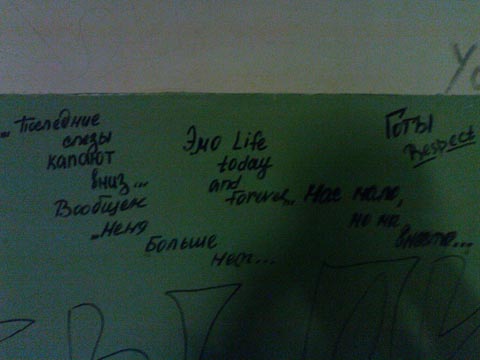 ... Последние
слезы
капают
вниз...
Вообщем
..меня
Больше
нет...
Эмо Life
today
and
forever..
Нас мало,
но мы
вместе...
Готы
Respect
Yo